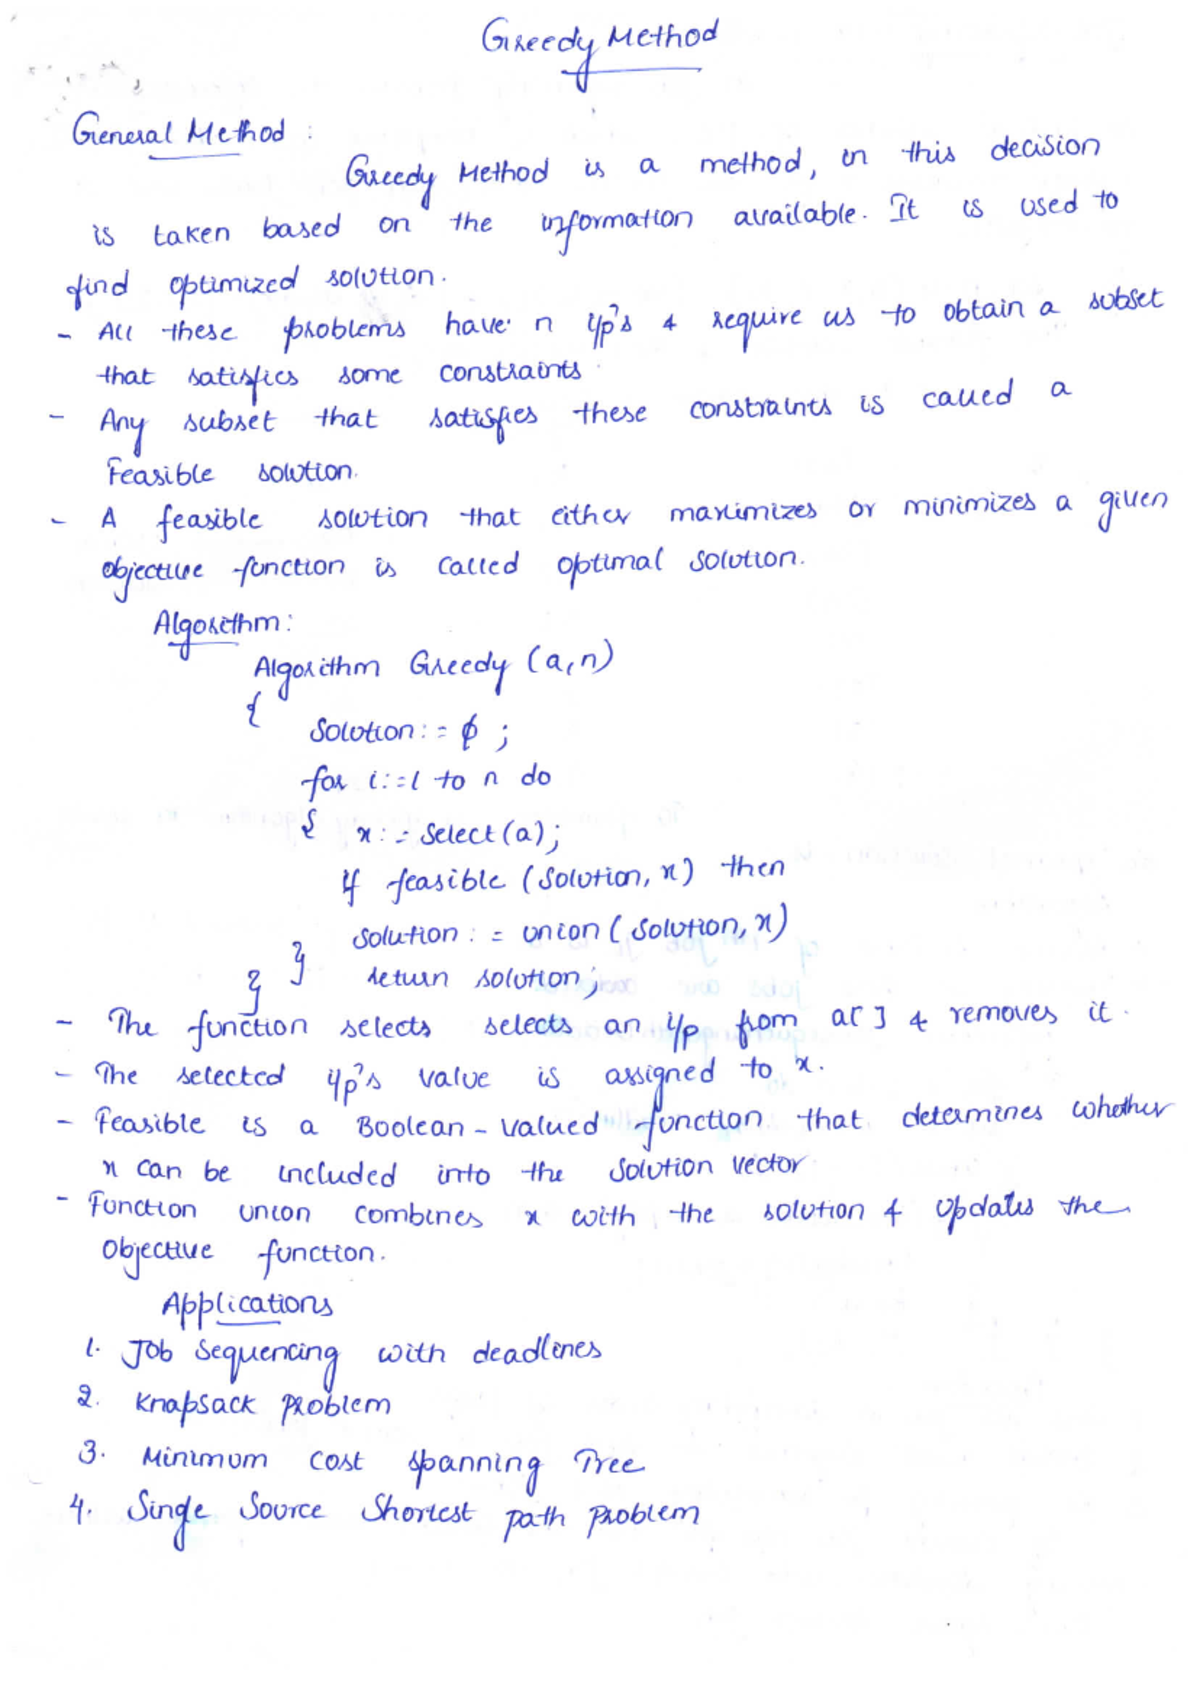 Greedy Method
General Method :
Greedy Method is a method, in this decision
is taken based on the information available. It is used to
find optimized solution.
- All these problems have n i/p's & require us to obtain a subset
that satisfies some constraints
- Any subset that satisfies these constraints is called a
Feasible solution.
- A feasible solution that either maximizes or minimizes a given
objective function is called optimal solution.
Algorithm:
Algorithm Greedy (a,n)
{
Solution := ϕ ;
for i:=1 to n do
{ x := Select(a);
if feasible (Solution, x) then
Solution := union (Solution, x)
} return solution;
}
- The function selects selects an i/p from a[ ] & removes it.
- The selected i/p's value is assigned to x.
- Feasible is a Boolean-valued function that determines whether
x can be included into the solution vector
- Function union combines x with the solution & updates the
objective function.
Applications
1. Job sequencing with deadlines
2. Knapsack problem
3. Minimum cost spanning Tree
4. Singe Source Shortest path problem